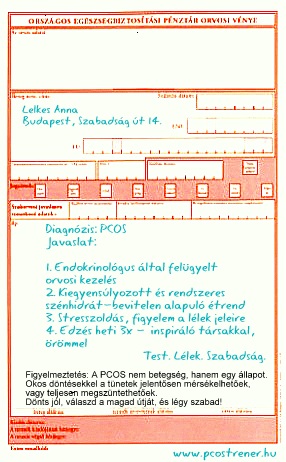 ORSZÁGOS EGÉSZSÉGBIZTOSÍTÁSI PÉNZTÁR ORVOSI VÉNYE
Az orvos adatai
Lelkes Anna
Budapest, Szabadság út 14.
Diagnózis: PCOS
Javaslat:
1. Endokrinológus által felügyelt
orvosi kezelés
2. Kiegyensúlyozott és rendszeres
szénhidrát-bevitelen alapuló étrend
3. Stresszoldás, figyelem a lélek jeleire
4. Edzés heti 3x - inspiráló társakkal,
örömmel
Test. Lélek. Szabadság.
Figyelmeztetés: A PCOS nem betegség, hanem egy állapot.
Okos döntésekkel a tünetek jelentősen mérsékelhetőek,
vagy teljesen megszüntethetőek.
Dönts jól, válaszd a magad útját, és légy szabad!
www.pcostrener.hu